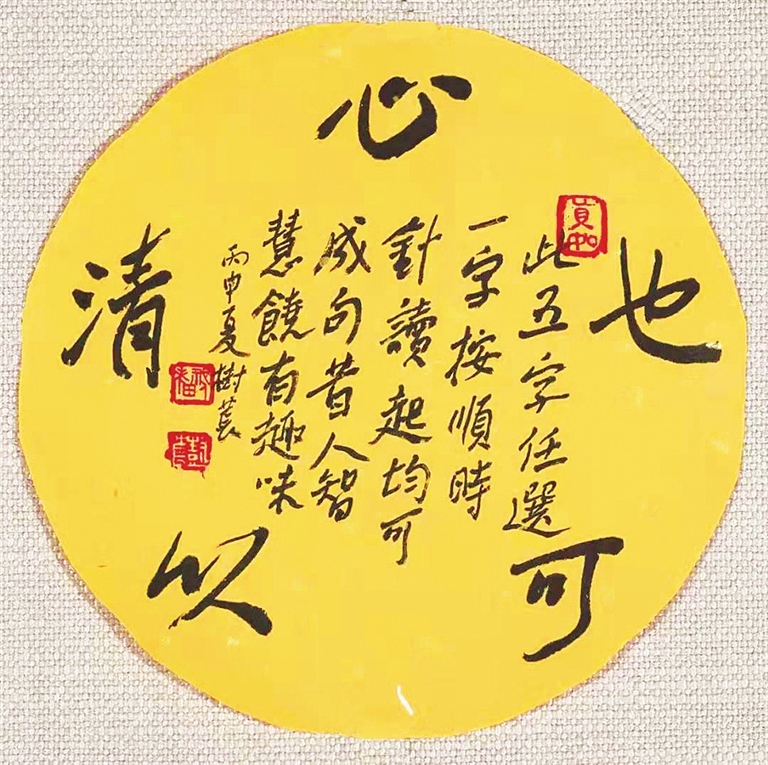 心
也
可
以
清
此五字任選
一字按順時
針讀起均可
成句昔人智
慧饒有趣味
丙申夏樹